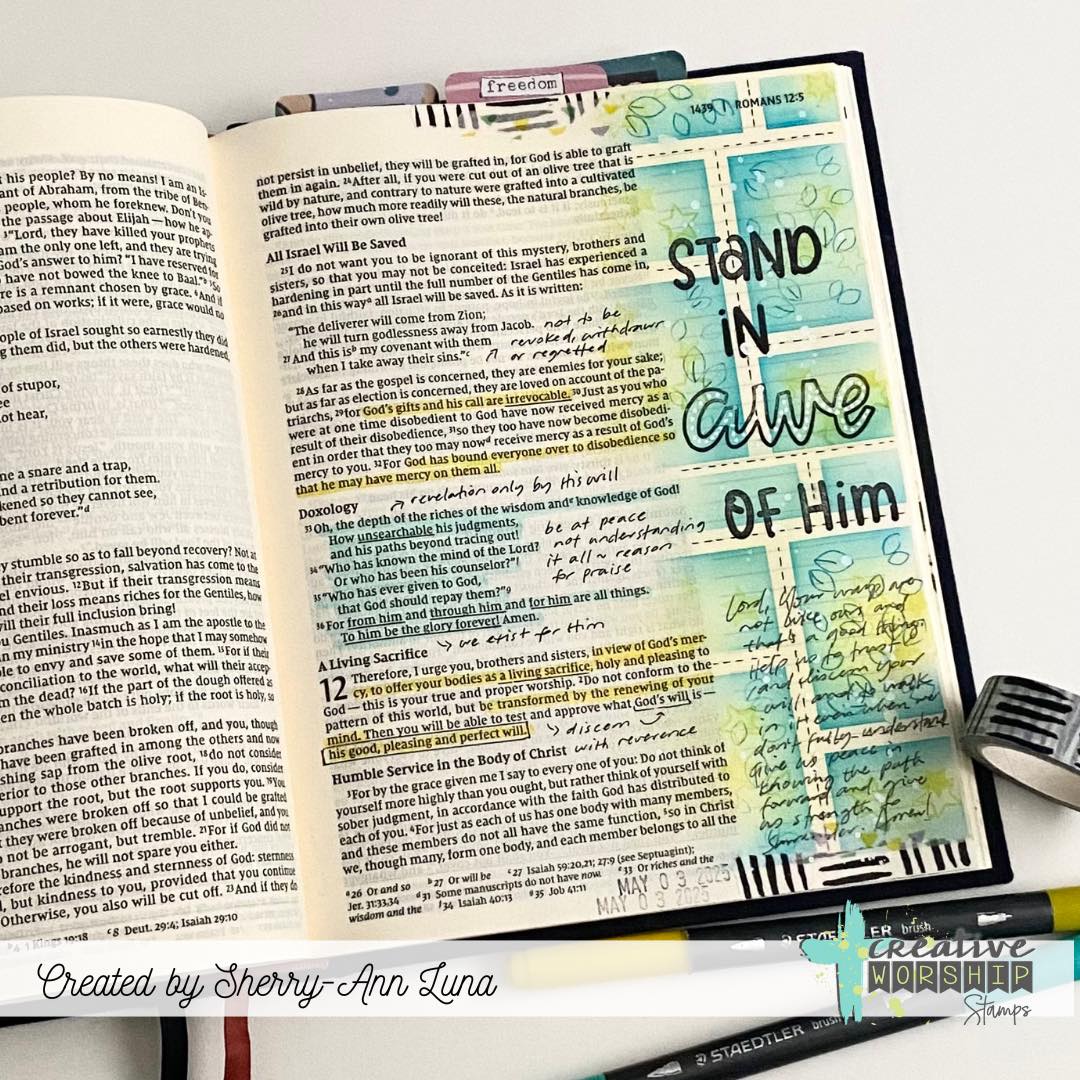 freedom
1439 | ROMANS 12:5
his people? By no means! I am an Is-
ant of Abraham, from the tribe of Ben-
people, whom he foreknew. Don't you
the passage about Elijah — how he ap-
3"Lord, they have killed your prophets
am the only one left, and they are trying
God's answer to him? "I have reserved for
have not bowed the knee to Baal."b 5So
re is a remnant chosen by grace. 6And if
based on works; if it were, grace would no
ople of Israel sought so earnestly they did
g them did, but the others were hardened,
of stupor,
ee
ot hear,
ne a snare and a trap,
nd a retribution for them.
kened so they cannot see,
bent forever."d
hey stumble so as to fall beyond recovery? Not at
their transgression, salvation has come to the
el envious. 12But if their transgression means
nd their loss means riches for the Gentiles, how
will their full inclusion bring!
u Gentiles. Inasmuch as I am the apostle to the
n my ministry 14in the hope that I may somehow
le to envy and save some of them. 15For if their
conciliation to the world, what will their accep-
om the dead? 16If the part of the dough offered as
en the whole batch is holy; if the root is holy, so
branches have been broken off, and you, though
have been grafted in among the others and now
shing sap from the olive root, 18do not consider
erior to those other branches. If you do, consider
upport the root, but the root supports you. 19You
anches were broken off so that I could be grafted
t they were broken off because of unbelief, and you
o not be arrogant, but tremble. 21For if God did not
branches, he will not spare you either.
efore the kindness and sternness of God: sternness
l, but kindness to you, provided that you continue
Otherwise, you also will be cut off. 23And if they do
Kings 19:18 c8 Deut. 29:4; Isaiah 29:10
not persist in unbelief, they will be grafted in, for God is able to graft
them in again. 24After all, if you were cut out of an olive tree that is
wild by nature, and contrary to nature were grafted into a cultivated
olive tree, how much more readily will these, the natural branches, be
grafted into their own olive tree!
All Israel Will Be Saved
25I do not want you to be ignorant of this mystery, brothers and
sisters, so that you may not be conceited: Israel has experienced a
hardening in part until the full number of the Gentiles has come in,
26and in this waya all Israel will be saved. As it is written:
"The deliverer will come from Zion;
he will turn godlessness away from Jacob.
27And this isb my covenant with them
when I take away their sins."c
not to be
revoked, withdrawn
or regretted
28As far as the gospel is concerned, they are enemies for your sake;
but as far as election is concerned, they are loved on account of the pa-
triarchs, 29for God's gifts and his call are irrevocable. 30Just as you who
were at one time disobedient to God have now received mercy as a
result of their disobedience, 31so they too have now become disobedi-
ent in order that they too may nowd receive mercy as a result of God's
mercy to you. 32For God has bound everyone over to disobedience so
that he may have mercy on them all.
Doxology
revelation only by His will
33Oh, the depth of the riches of the wisdom ande knowledge of God!
How unsearchable his judgments,
and his paths beyond tracing out!
34"Who has known the mind of the Lord?
Or who has been his counselor?"f
35"Who has ever given to God,
that God should repay them?"g
36For from him and through him and for him are all things.
To him be the glory forever! Amen.
be at peace
not understanding
it all ~ reason
for praise
we exist for Him
A Living Sacrifice
12 Therefore, I urge you, brothers and sisters, in view of God's mer-
cy, to offer your bodies as a living sacrifice, holy and pleasing to
God — this is your true and proper worship. 2Do not conform to the
pattern of this world, but be transformed by the renewing of your
mind. Then you will be able to test and approve what God's will is —
his good, pleasing and perfect will.
discern
with reverence
Humble Service in the Body of Christ
3For by the grace given me I say to every one of you: Do not think of
yourself more highly than you ought, but rather think of yourself with
sober judgment, in accordance with the faith God has distributed to
each of you. 4For just as each of us has one body with many members,
and these members do not all have the same function, 5so in Christ
we, though many, form one body, and each member belongs to all the
a26 Or and so b27 Or will be c27 Isaiah 59:20,21; 27:9 (see Septuagint);
Jer. 31:33,34 d31 Some manuscripts do not have now e33 Or riches and the
wisdom and the f34 Isaiah 40:13 g35 Job 41:11
MAY 03 2025
MAY 03 2025
STAND
IN
awe
OF Him
Lord, Your ways are
not like ours and
that's a good thing
Help us to trust
and discern your
will and to walk
in it even when we
don't fully understand
Give us peace in
knowing the path
forward and give
us strength to
Amen!
STAEDTLER brush
STAEDTLER brush
Created by Sherry-Ann Luna
CREATIVE
WORSHIP
Stamps